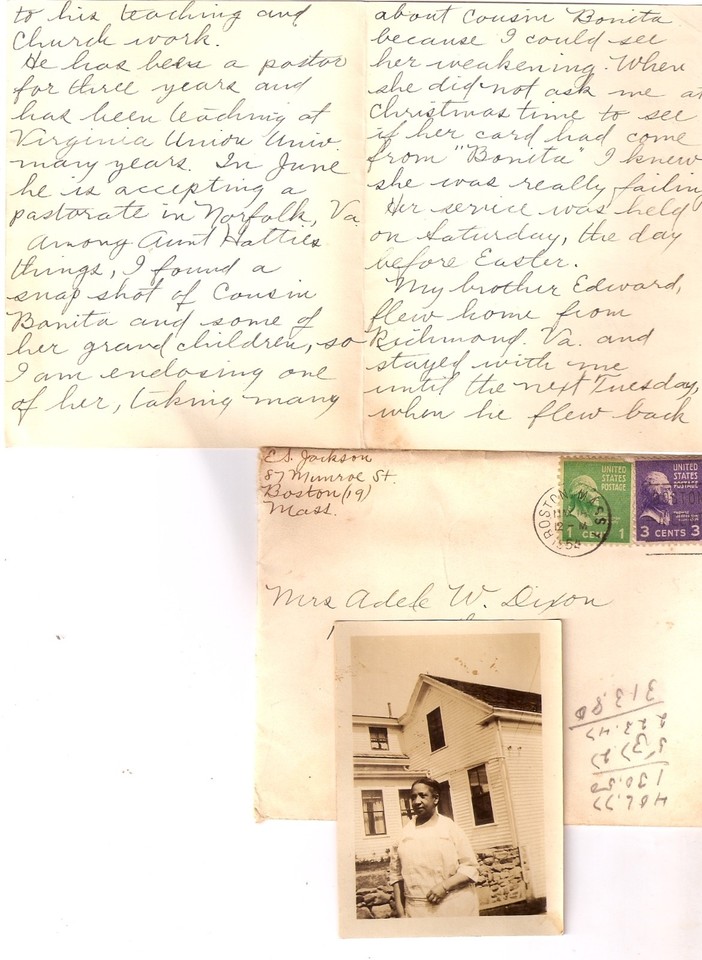 to his teaching and
Church work.
He has been a pastor
for three years and
has been teaching at
Virginia Union Univ.
many years. In June
he is accepting a
pastorate in Norfolk, Va.
Among Aunt Hatties
things, I found a
snap shot of Cousin
Bonita and some of
her grand children, so
I am enclosing one
of her, taking many
about Cousin Bonita
because I could see
her weakening. When
she did not ask me at
Christmas time to see
if her card had come
from "Bonita" I knew
she was really failin
Her service was held
on Saturday, the day
before Easter.
My brother Edward,
flew home from
Richmond. Va. and
stayed with me
until the next Tuesday,
when he flew back
E.S. Jackson
87 Munroe St.
Boston (19)
Mass.
BOSTON, MASS.
12 - M
UNITED
STATES
POSTAGE
1 CENT 1
UNITED
STATES
POSTAGE
3 CENTS 3
Mrs Adele W. Dixon
313.80
223.47